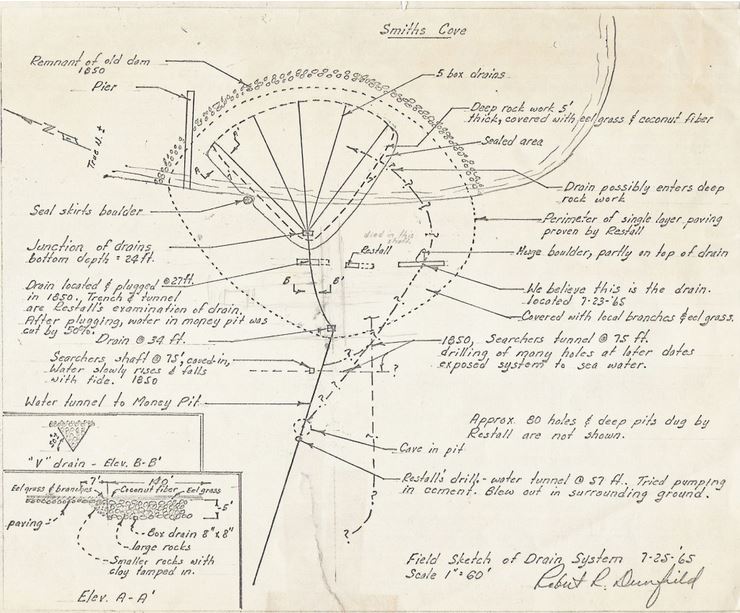 Smiths Cove
Remnant of old dam
1850
Pier
5 box drains
Deep rock work 5'
thick, covered with eel grass & coconut fiber
Sealed area
True N.±
Drain possibly enters deep
rock work
Seal skirts boulder
Perimeter of single layer paving
proven by Restall
died in this
shaft
Junction of drains,
bottom depth = 24 ft.
Restall
Huge boulder, partly on top of drain
Drain located & plugged @ 27 ft.
in 1850. Trench & tunnel
are Restall's examination of drain.
After plugging, water in money pit was
cut by 50%.
B B'
We believe this is the drain.
located 7-23-'65
Covered with local branches & eel grass.
Drain @ 34 ft.
Searchers, shaft @ 75', caved-in,
Water slowly rises & falls
with tide. 1850
1850, Searchers tunnel @ 75 ft.
drilling of many holes at later dates
exposed system to sea water.
Water tunnel to Money Pit
Approx. 80 holes & deep pits dug by
Restall are not shown.
Cave in pit
Restall's drill - water tunnel @ 57 ft. Tried pumping
in cement. Blew out in surrounding ground.
"V" drain - Elev. B-B'
7' 140'
Eel grass & branches Coconut fiber Eel grass
5'
paving
Box drain 8" x 8"
large rocks
Smaller rocks with
clay tamped in.
Elev. A-A'
Field Sketch of Drain System 7-25-'65
Scale 1" = 60'
Robert R. Dunfield